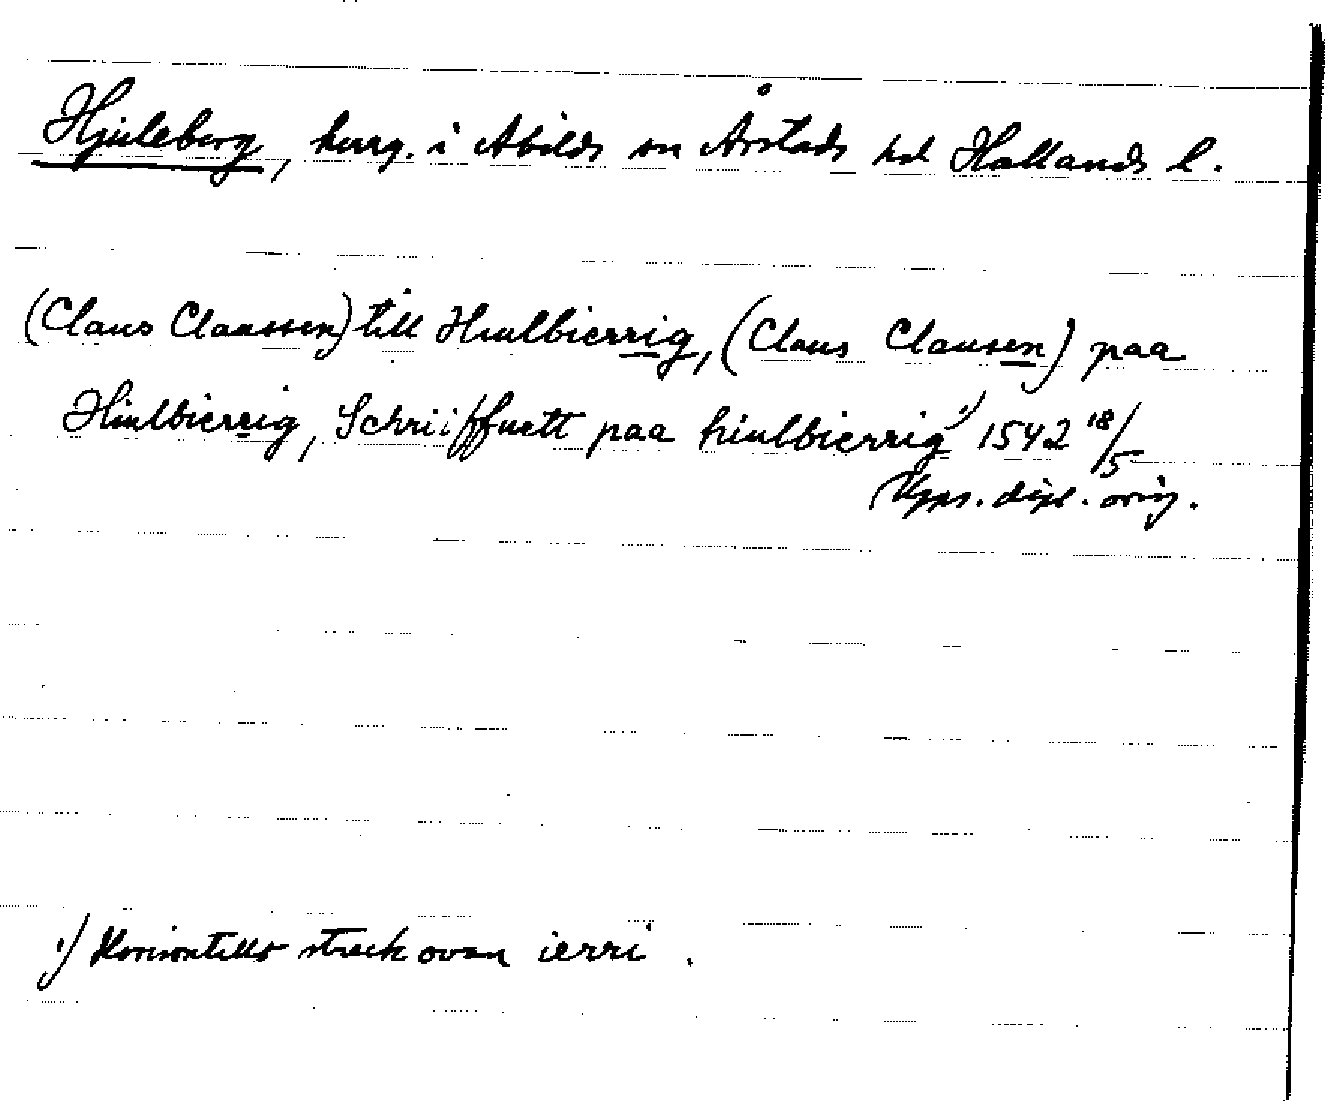 Hjuleberg, herrg. i Abilds sn Årstads hd Hallands l.
(Claus Claussen) till Hiulbierrig, (Claus Clausen) paa
Hiulbierrig, Schriiffuett paa hiulbierrig 1) 1542 18/5
Upps. dipl. orig.
1) Horisontellt streck ovan ierri.